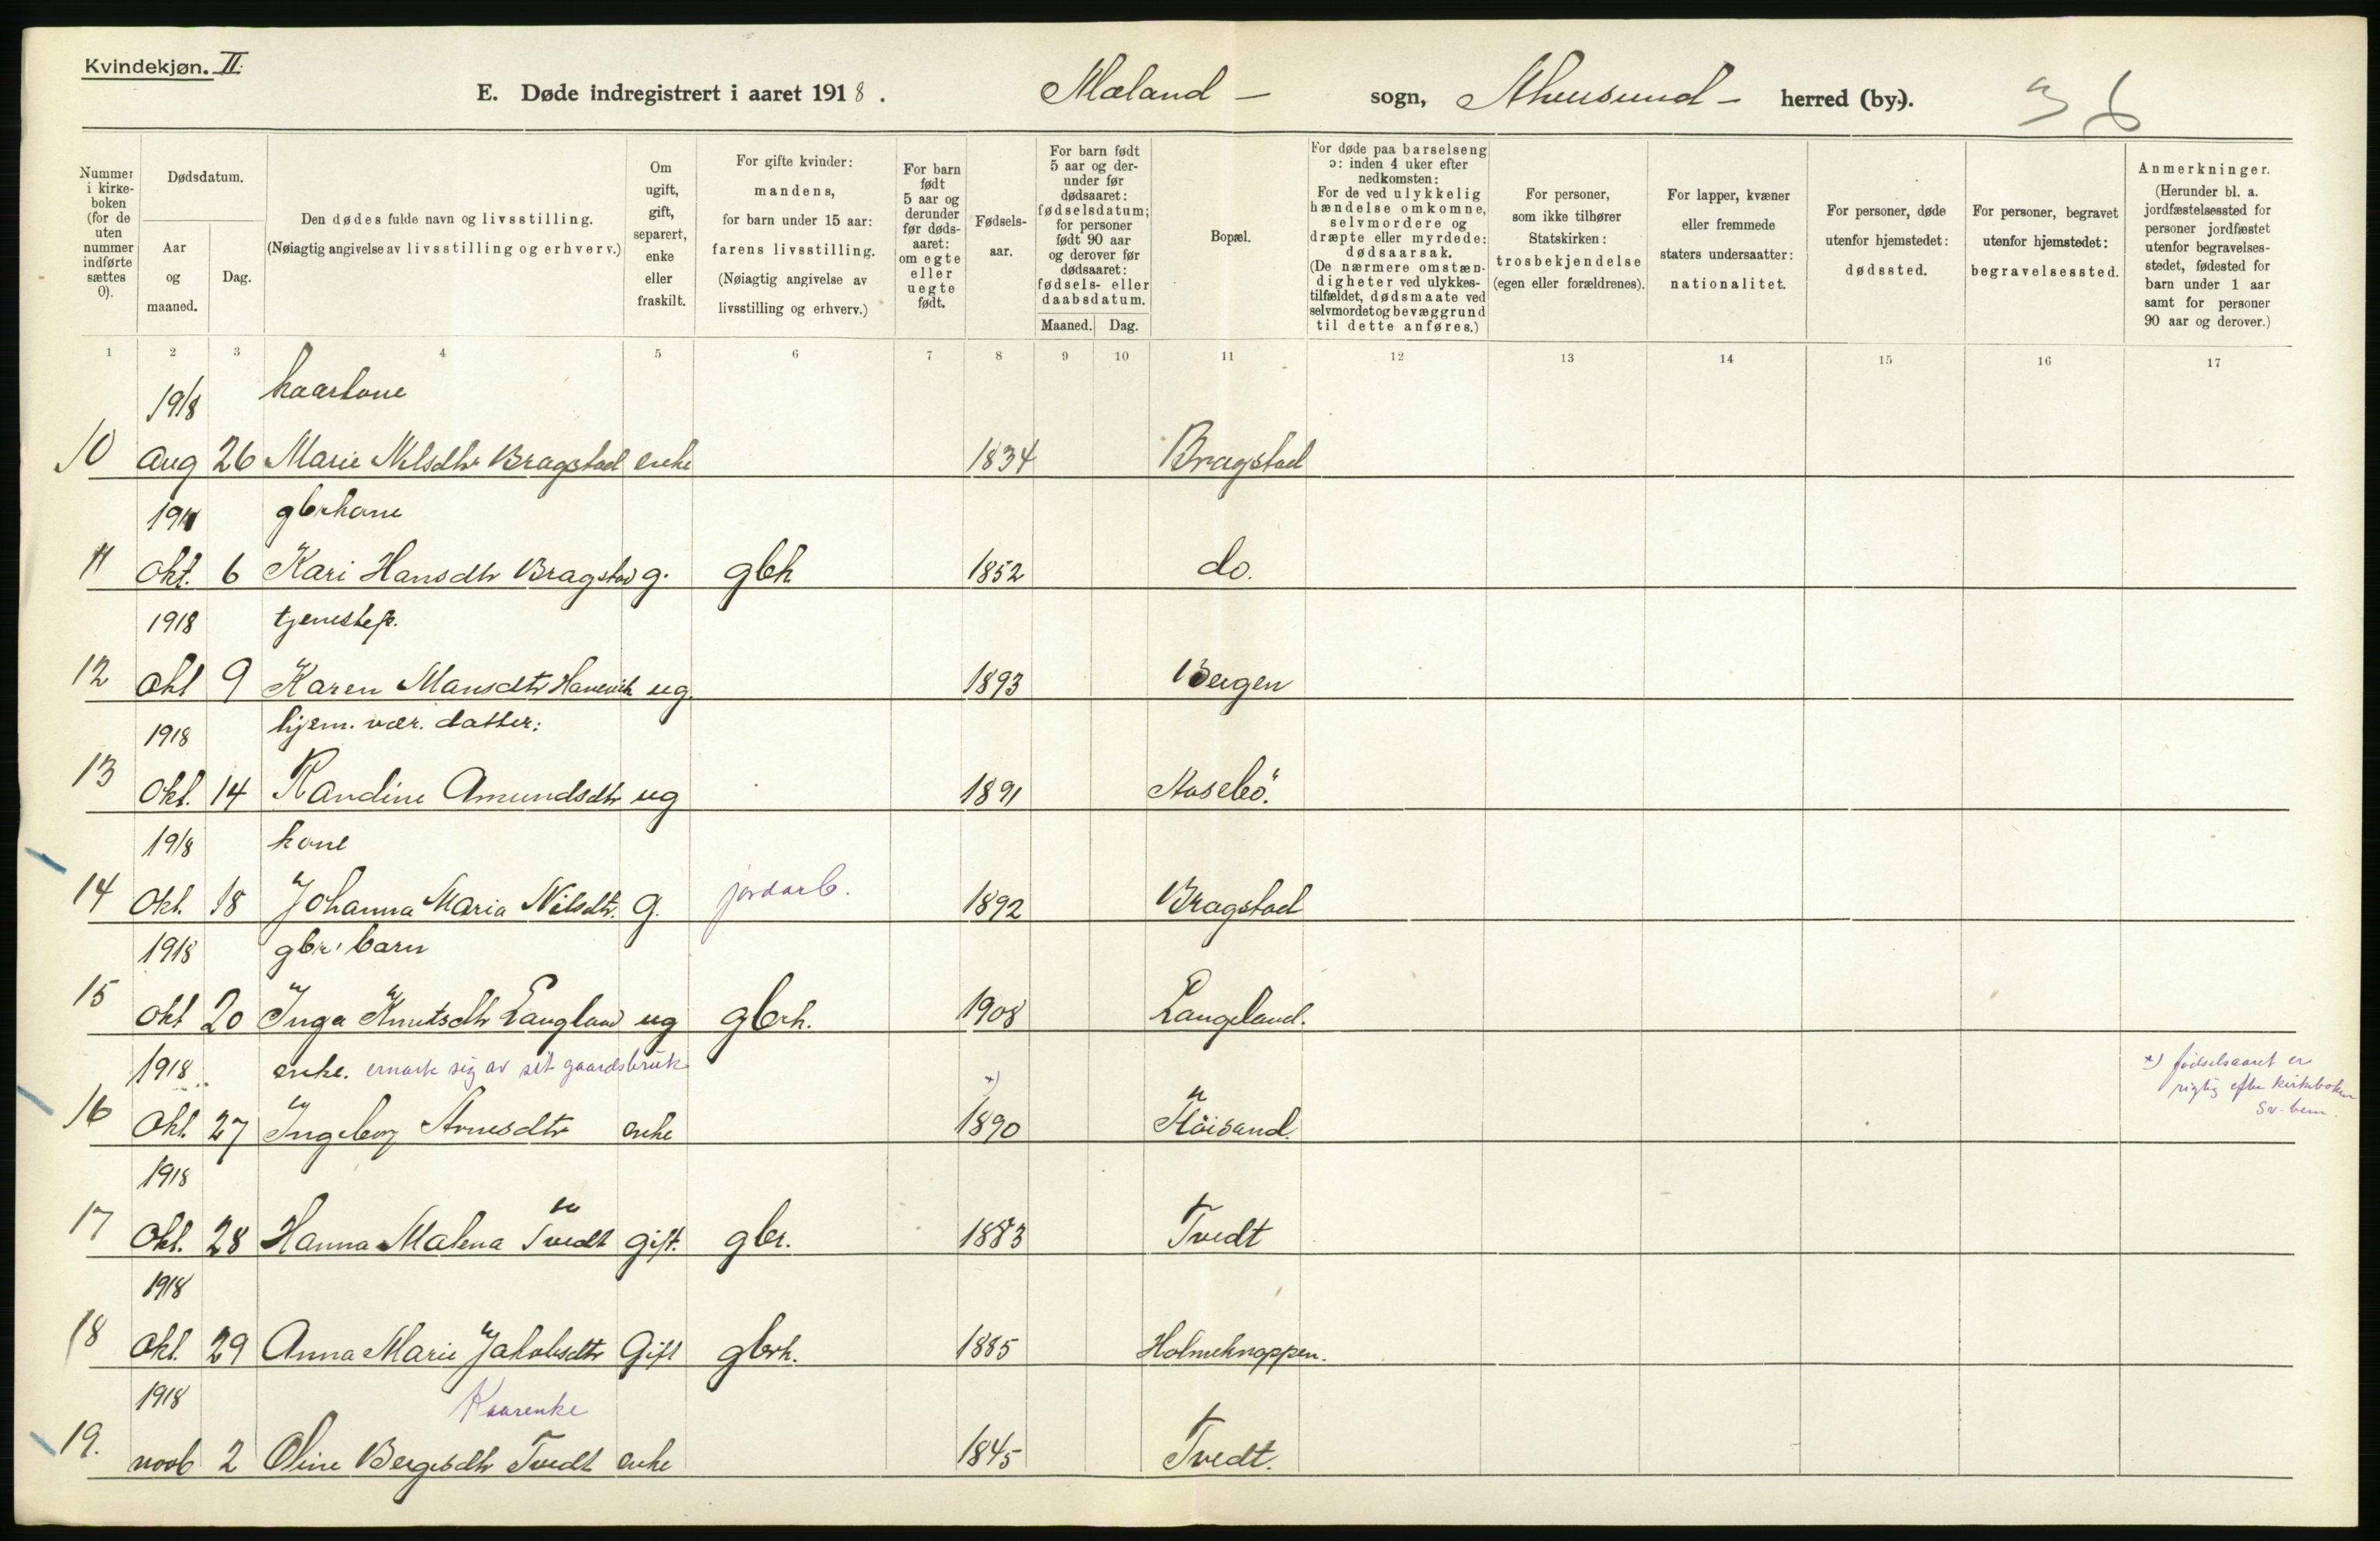 Kvindekjøn. II.
E. Døde indregistrert i aaret 1918. Mæland - sogn, herred (by).
Nummer i kirkeboken (for de uten nummer indførte sættes 0).
Dødsdatum.
Aar og maaned.
Dag.
Den dødes fulde navn og livsstilling.
(Nøiagtig angivelse av livsstilling og erhverv.)
Om ugift, gift, separert, enke eller fraskilt.
For gifte kvinder: mandens, for barn under 15 aar: farens livsstilling. (Nøiagtig angivelse av livsstilling og erhverv.)
For barn født 5 aar og derunder før dødsaaret: om egte eller uegte født.
Fødselsaar.
For barn født 5 aar og derunder før dødsaaret: fødselsdatum; for personer født 90 aar og derover før dødsaaret: fødsels- eller daabsdatum.
Maaned. Dag.
Bopæl.
For døde paa barselseng ɔ: inden 4 uker efter nedkomsten: For de ved ulykkelig hændelse omkomne, selvmordere og dræpte eller myrdede: dødsaarsak. (De nærmere omstændigheter ved ulykkestilfældet, dødsmaate ved selvmordet og bevæggrund til dette anføres.)
For personer, som ikke tilhører Statskirken: trosbekjendelse (egen eller forældrenes).
For lapper, kvæner eller fremmede staters undersaatter: nationalitet.
For personer, døde utenfor hjemstedet: dødssted.
For personer, begravet utenfor hjemstedet: begravelsessted.
Anmerkninger. (Herunder bl. a. jordfæstelsessted for personer jordfæstet utenfor begravelsesstedet, fødested for barn under 1 aar samt for personer 90 aar og derover.)
1 2 3 4 5 6 7 8 9 10 11 12 13 14 15 16 17
1918 kaarkone
10 Aug 26 Marie Nilsdtr Bragstad enke 1834 Bragstad
191 gbrkone
11 Okt. 6 Kari Hansdtr Bragstad g. gbh 1852 do.
1918 tjenestep.
12 Okt 9 Karen Mansdtr ug. 1893 Bergen
1918 hjem. vær. datter:
13 Okt. 14 Randine Amundsdtr ug 1891
1918 kone
14 Okt. 18 Johanna Maria Nilsdtr. g. jordarb. 1892 Bragstad
1918 gbr. barn
15 Okt 20 Inga Knutsdtr Langland ug gbrh. 1908 Langeland.
1918 enke. ernærte sig av sit gaardsbruk
16 Okt. 27 Ingeborg Arnesdtr enke x) 1890 Høisand.
x) fødselsaaret er
rigtig efter kirkeboken
1918
17 Okt. 28 Hanna Malena Tvedt gift. gbr. 1883 Tvedt
1918
18 Okt. 29 Anna Marie Jakobsdtr Gift gbrh. 1885 Holmeknappen.
1918 Kaarenke
19. novb 2 Oline Bergesdtr Tvedt enke 1845 Tvedt.